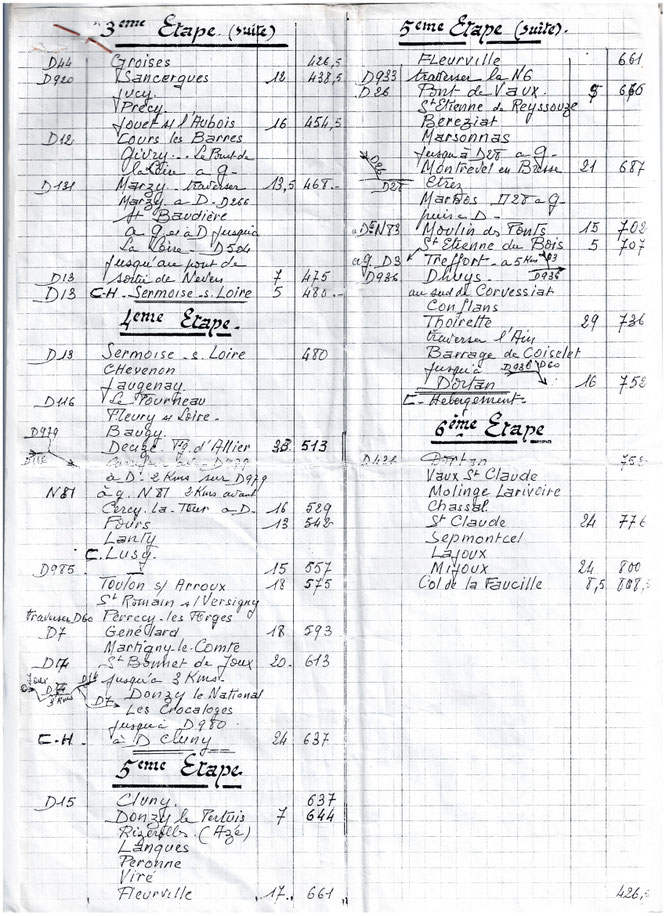 3eme Etape. (suite)
D44 Groises 426,5
D920 Sancergues 12 438,5
Jucy.
Précy.
Jouet s/ l'Aubois 16 454,5
D12 Cours les Barres
Givry... Le Port de
la Loire a g-
D131 Marzy - traverser 13,5 468.-
Marzy a D - D266
St Baudière
a g et à D jusqu'a
La Loire - D504
jusqu'au pont de
D13 sortie de Nevers 7 475
D13 C-H- Sermoise-s-Loire 5 480.-
4eme Etape.
D13 Sermoise-s-Loire 480
CHevenon
Jaugenay.
D116 Le Tourneau
Fleury s/ Loire.
D979 Baugy.
D116 Decize. Fg. d'Allier 33 513
à D. 2 Kms sur D979
N81 à g. N81 2Kms avant
Cercy-la-Tour a D. 16 529
Fours 13 542
Lanty
C. Lusy.
D985 15 557
Toulon s/ Arroux 18 575
St Romain s/ Versigny
traverser D60 Perrecy-les Forges
D7 Génélard 18 593
Martigny-le-Comte
D14 St Bonnet de Joux 20 613
Joux jusqu'a 3 Kms-
3 Kms Donzy le National
D7 Les Crocaloges
jusqu'à D980
C-H. à D Cluny 24 637
5eme Etape.
D15 Cluny. 637
Donzy le Pertuis 7 644
Rizerolles. (Azé)
Langues
Peronne
Viré
Fleurville 17. 661
5eme Etape (suite).
Fleurville 661
D933 traverser la N6
D26 Pont de Vaux. 5 666
St Etienne de Reyssouze
Bereziat
Marsonnas
jusqu'à D28 a g-
D26 Montrevel en Bresse 21 687
D28 Etrez
Marbos D28 a g-
puis a D-
N83 Moulin des Ponts 15 702
St Etienne du Bois 5 707
a g. D3 Treffort - a 5 Kms D3
D936 Dhuys. D936
au sud de Corvessiat
Conflans
Thoirette 29 736
traverser l'Ain
Barrage de Coiselet
jusqu'à D936 D60
Dortan 16 752
C-Hebergement-
6eme Etape
D436 Dortan 752
Vaux St Claude
Molinge Larivoire
Chassal.
St Claude 24 776
Septmontcel
Lajoux
Mijoux 24 800
Col de la Faucille 8,5 808,5
426,5